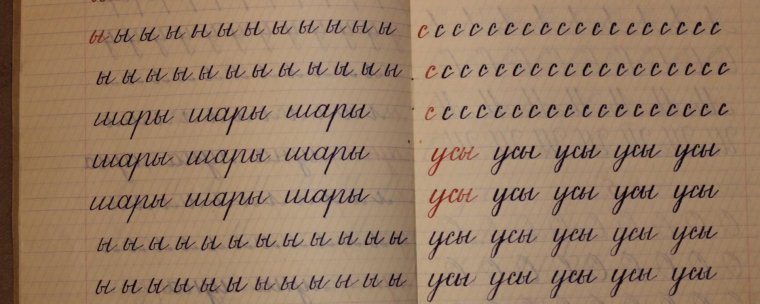 ы ы ы ы ы ы ы ы ы ы ы ы
ы ы ы ы ы ы ы ы ы ы ы ы ы
шары шары шары
шары шары шары
шары шары шары
ы ы ы ы ы ы ы ы ы ы ы ы ы
ы ы ы ы ы ы ы ы ы ы ы ы ы
с с с с с с с с с с с с с с с с с с
с с с с с с с с с с с с с с с с с с
с с с с с с с с с с с с с с с с с с
усы усы усы усы усы
усы усы усы усы усы
усы усы усы усы усы
усы усы усы усы усы